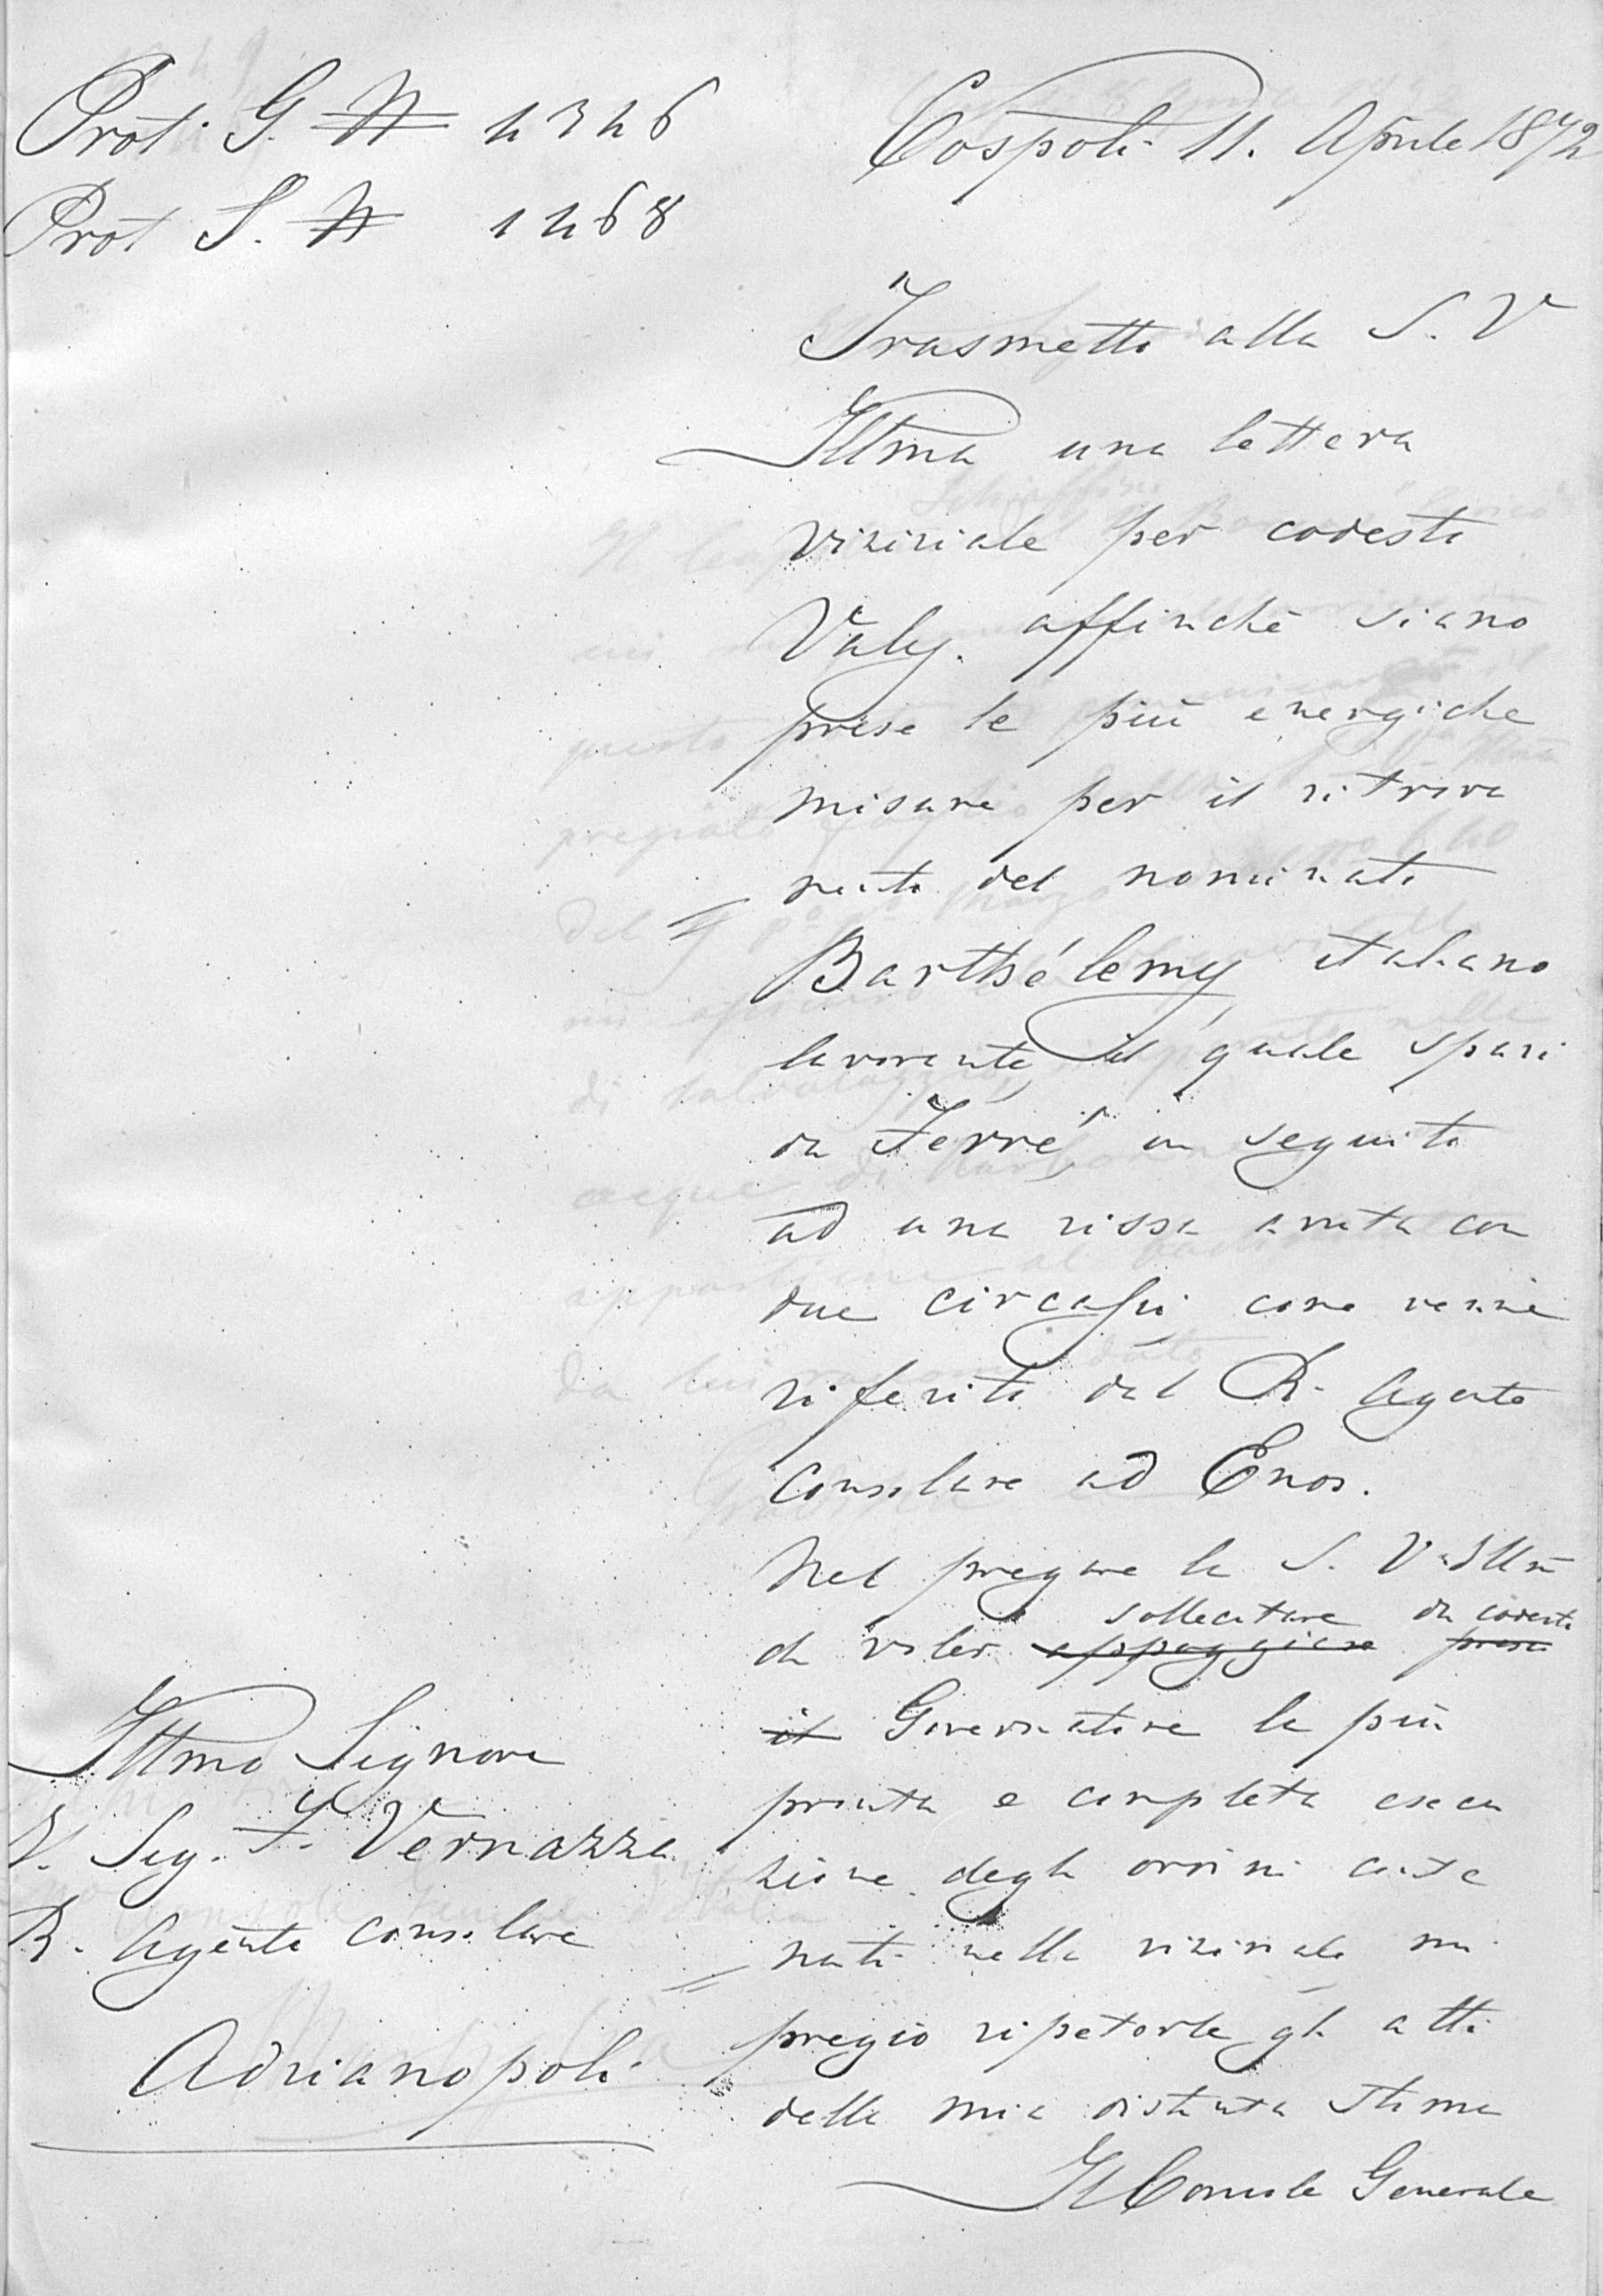 Prot. G. N 4346
Prot S. N 1468
Cospoli 11. Aprile 1872
Trasmetto alla S. V
Illma una lettera
viziriale per codesto
Valy. affinchè siano
prese le più energiche
misure per il ritrova
mento del nominato
Barthélemy italiano
lavorante il quale sparì
da Ferré in seguito
ad una rissa avuta con
due circassi come venne
riferito dal R. Agente
Consolare ad Enos.
Nel pregare la S. V. Illma
di voler appoggiare sollecitare presso da codesto
il Governatore la più
pronta e completa esecu
zione degli ordini conte
nuti nella viziriale mi
pregio ripeterle gli atti
della mia distinta stima
Il Console Generale
Illmo Signore
V. Sig. F. Vernazza
R. Agente consolare
Adrianopoli